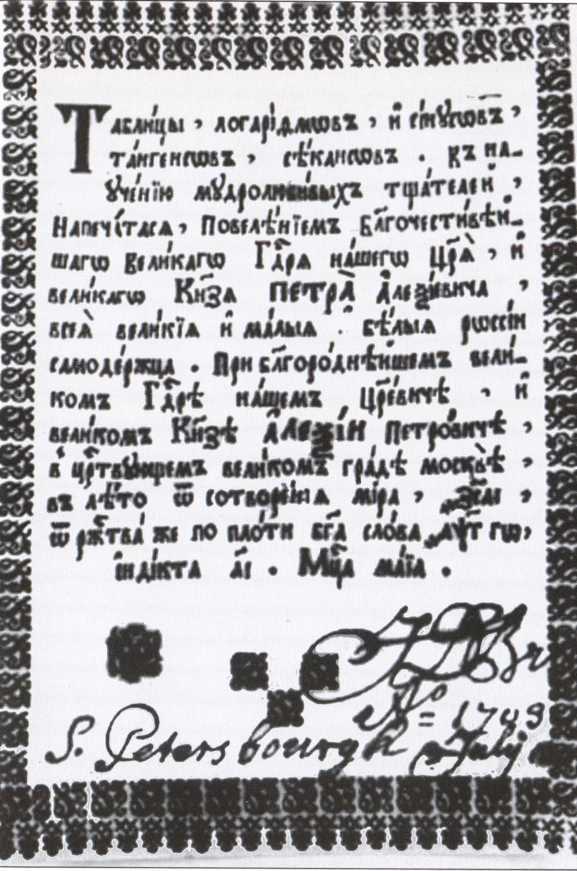 Таблицы, логарїѳмωвъ, и сѵнусωвъ,
тангенсωвъ, сѣкансωвъ. къ на-
ученїю мудролюбивыхъ тщателей,
Напечатаса, повелѣнїемъ бл҃гочестивѣй-
шагω великагω Гд҃ра нашегω цр҃ѧ, и
великагω Кн҃зѧ ПЕТРА Алеѯїевича,
всеѧ великїѧ и малыѧ. бѣлыѧ рωссїи
самодержца. При бл҃городнѣйшемъ вели-
комъ Гд҃рѣ нашемъ цр҃евичѣ, и
великомъ Кн҃зѣ Алеѯїи Петровичѣ,
в црⷭ҇твующемъ великомъ градѣ москвѣ,
въ лѣто ѿ сотворенїѧ мїра,
ѿ ржⷭ҇тва же по плоти бг҃а слова, гω,
їндїкта а҃ї. Мцⷭ҇а маїа.
No = 17
S. Petersbourgh July